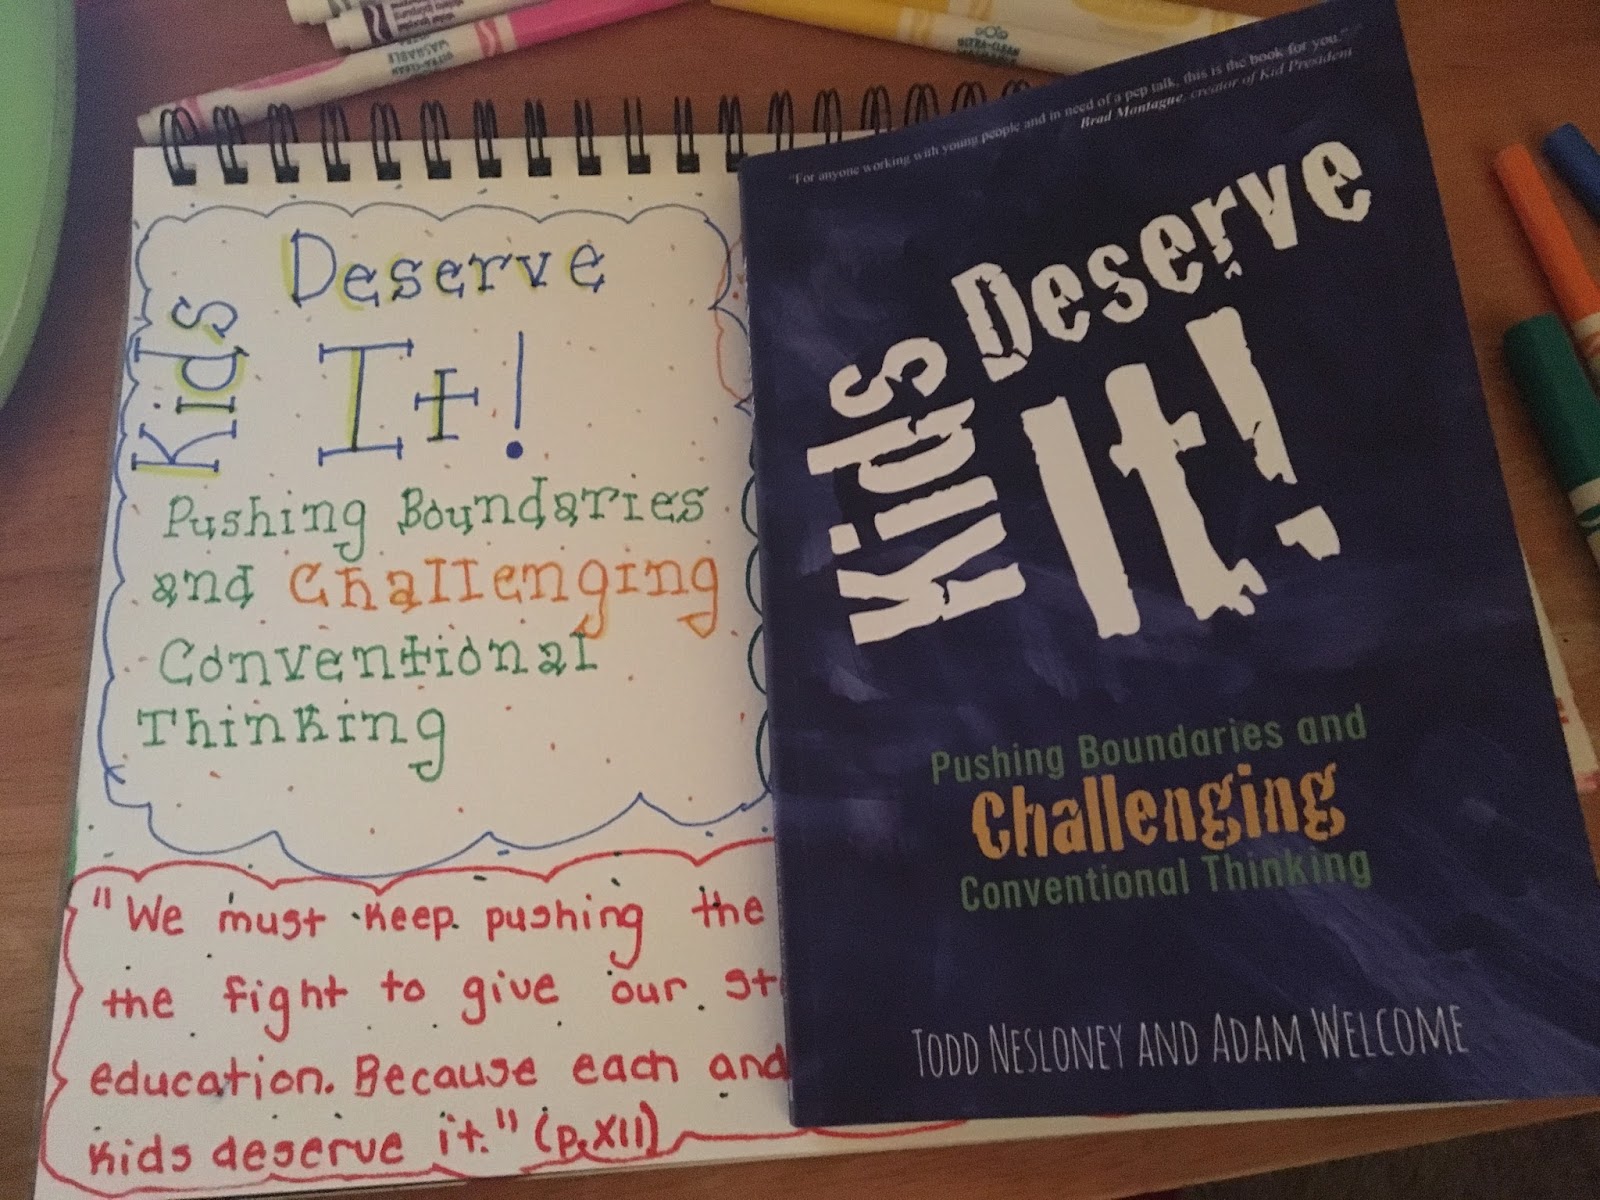 ULTRA-CLEAN
WASHABLE
ULTRA-CLEAN
Kids
Deserve
It!
Pushing Boundaries
and Challenging
Conventional
Thinking
"We must keep pushing the
the fight to give our st
education. Because each and
kids deserve it." (p.XII)
"For anyone working with young people and in need of a pep talk, this is the book for you."
Brad Montague, creator of Kid President
Kids
Deserve
It!
Pushing Boundaries and
Challenging
Conventional Thinking
Todd Nesloney and Adam Welcome